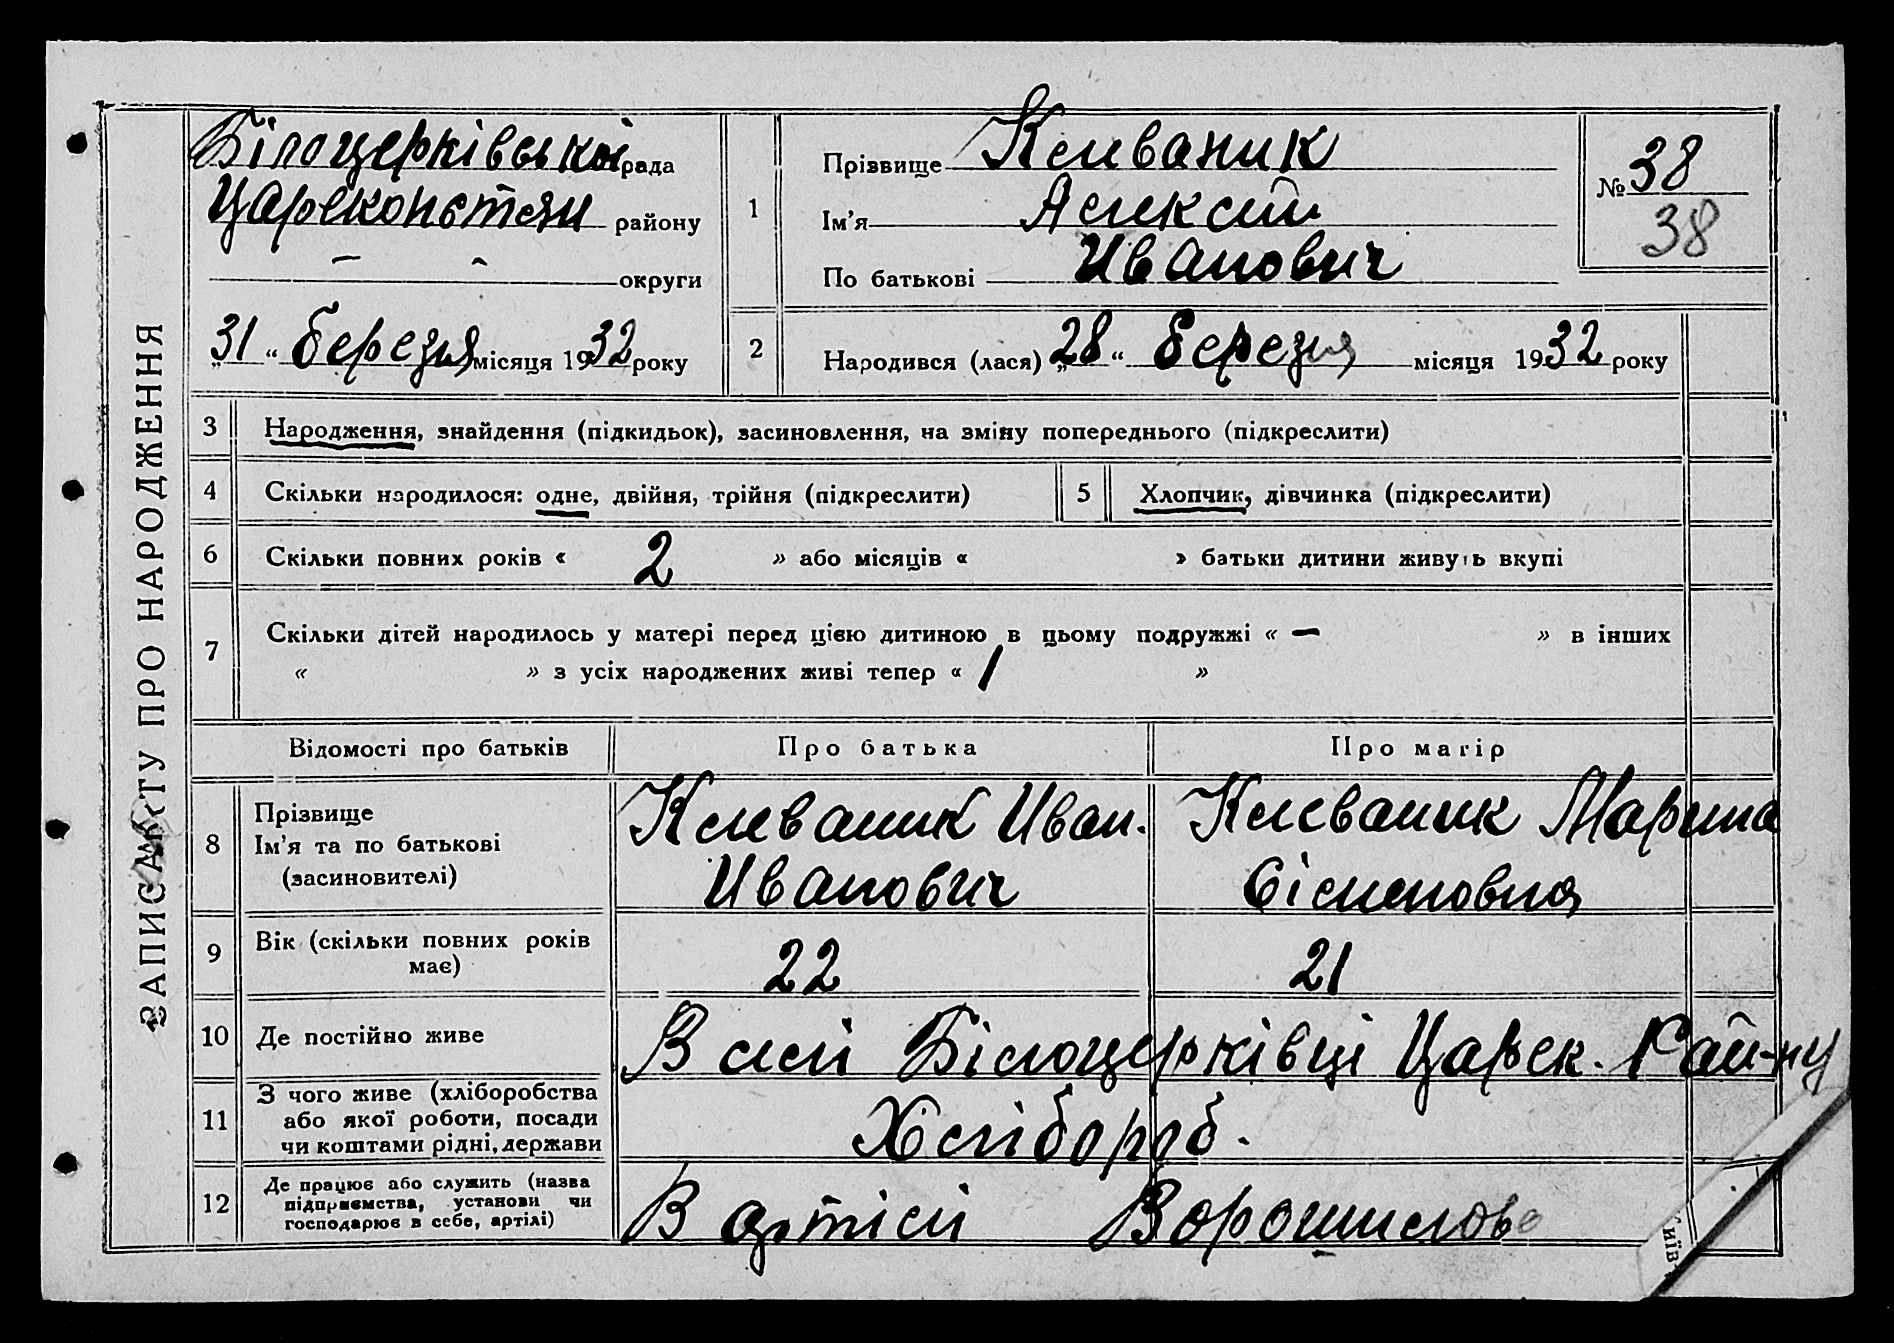 ЗАПИС АКТУ ПРО НАРОДЖЕННЯ
Білоцерківська рада
Цареконстян району
— — округи
„31“ березня місяця 1932 року
1
Прізвище Клеваник
Ім'я Алексій
По батькові Иванович
№ 38
38
2 Народився (лася) „28“ березня місяця 1932 року
3 Народження, знайдення (підкидьок), засиновлення, на зміну попереднього (підкреслити)
4 Скільки народилося: одне, двійня, трійня (підкреслити)
5 Хлопчик, дівчинка (підкреслити)
6 Скільки повних років « 2 » або місяців « » батьки дитини живуть вкупі
7 Скільки дітей народилось у матері перед цією дитиною в цьому подружжі « — » в інших
« » з усіх народжених живі тепер « 1 »
Відомості про батьків Про батька Про матір
8
Прізвище
Ім'я та по батькові
(засиновителі)
Клеваник Иван.
Иванович
Клеваник Марина
Сіменовна
9
Вік (скільки повних років
має)
22
21
10 Де постійно живе
В селі Білоцерківці Царек. Рай-ну
11
З чого живе (хліборобства
або якої роботи, посади
чи коштами рідні, держави
Хлібороб.
12
Де працює або служить (назва
підприємства, установи чи
господарює в себе, артілі)
В артілі Ворошилова
Київ